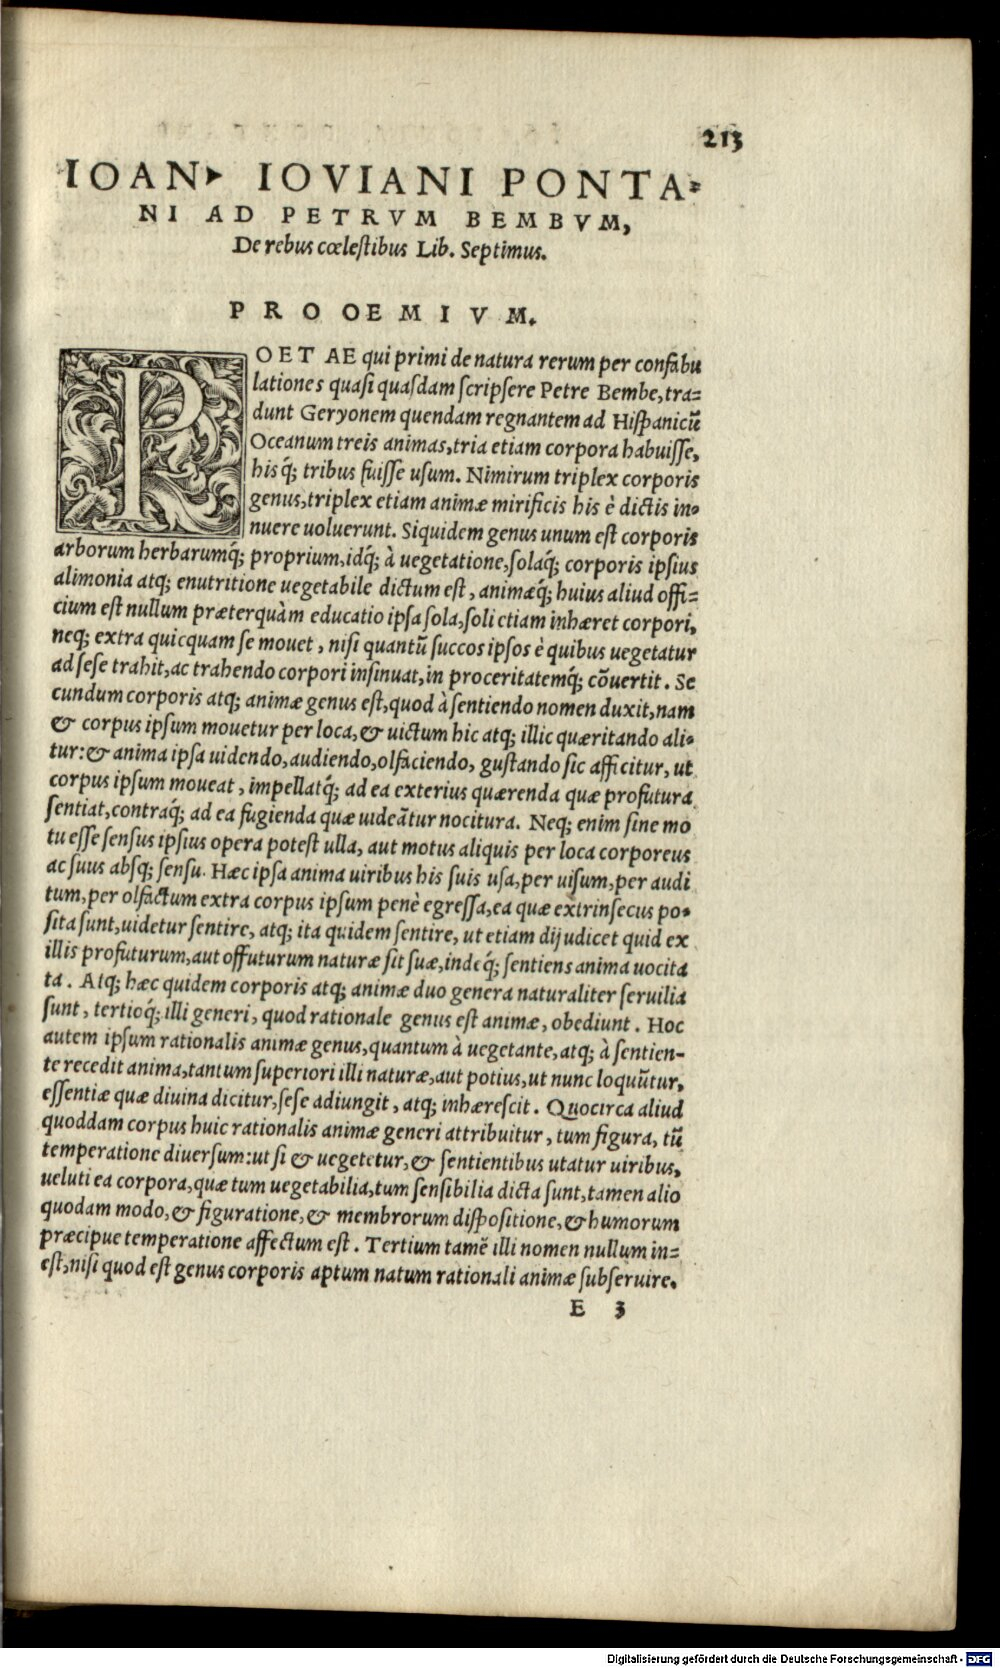 213
IOAN. IOVIANI PONTA-
NI AD PETRVM BEMBVM,
De rebus cœlestibus Lib. Septimus.
PROOEMIVM.
POETAE qui primi de natura rerum per confabu
lationes quasi quasdam scripsere Petre Bembe, tra-
dunt Geryonem quendam regnantem ad Hispanicũ
Oceanum treis animas, tria etiam corpora habuisse,
his q́; tribus fuisse usum. Nimirum triplex corporis
genus, triplex etiam animæ mirificis his è dictis in-
nuere uoluerunt. Siquidem genus unum est corporis
arborum herbarumq́; proprium, idq́; à uegetatione, solaq́; corporis ipsius
alimonia atq; enutritione uegetabile dictum est, animæq́; huius aliud offi-
cium est nullum præterquàm educatio ipsa sola, soli etiam inhæret corpori,
neq; extra quicquam se mouet, nisi quantũ succos ipsos è quibus uegetatur
ad sese trahit, ac trahendo corpori insinuat, in proceritatemq́; cõuertit. Se
cundum corporis atq; animæ genus est, quod à sentiendo nomen duxit, nam
& corpus ipsum mouetur per loca, & uictum hic atq; illic quæritando ali-
tur: & anima ipsa uidendo, audiendo, olfaciendo, gustando sic afficitur, ut
corpus ipsum moueat, impellatq́; ad ea exterius quærenda quæ profutura
sentiat, contraq́; ad ea fugienda quæ uideãtur nocitura. Neq; enim sine mo
tu esse sensus ipsius opera potest ulla, aut motus aliquis per loca corporeus
ac suus absq; sensu. Hæc ipsa anima uiribus his suis usa, per uisum, per audi
tum, per olfactum extra corpus ipsum penè egressa, ea quæ extrinsecus po-
sita sunt, uidetur sentire, atq; ita quidem sentire, ut etiam dijudicet quid ex
illis profuturum, aut offuturum naturæ sit suæ, indeq́; sentiens anima uocita
ta. Atq; hæc quidem corporis atq; animæ duo genera naturaliter seruilia
sunt, tertioq́; illi generi, quod rationale genus est animæ, obediunt. Hoc
autem ipsum rationalis animæ genus, quantum à uegetante, atq; à sentien-
te recedit anima, tantum superiori illi naturæ, aut potius, ut nunc loquũtur,
essentiæ quæ diuina dicitur, sese adiungit, atq; inhærescit. Quocirca aliud
quoddam corpus huic rationalis animæ generi attribuitur, tum figura, tũ
temperatione diuersum: ut si & uegetetur, & sentientibus utatur uiribus,
ueluti ea corpora, quæ tum uegetabilia, tum sensibilia dicta sunt, tamen alio
quodam modo, & figuratione, & membrorum dispositione, & humorum
præcipue temperatione affectum est. Tertium tamẽ illi nomen nullum in-
est, nisi quod est genus corporis aptum natum rationali animæ subseruire.
E 3
Digitalisierung gefördert durch die Deutsche Forschungsgemeinschaft - DFG